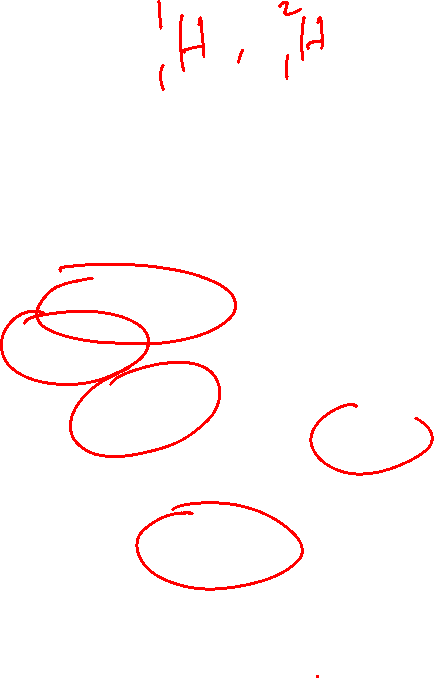 ¹₁H, ²₁H